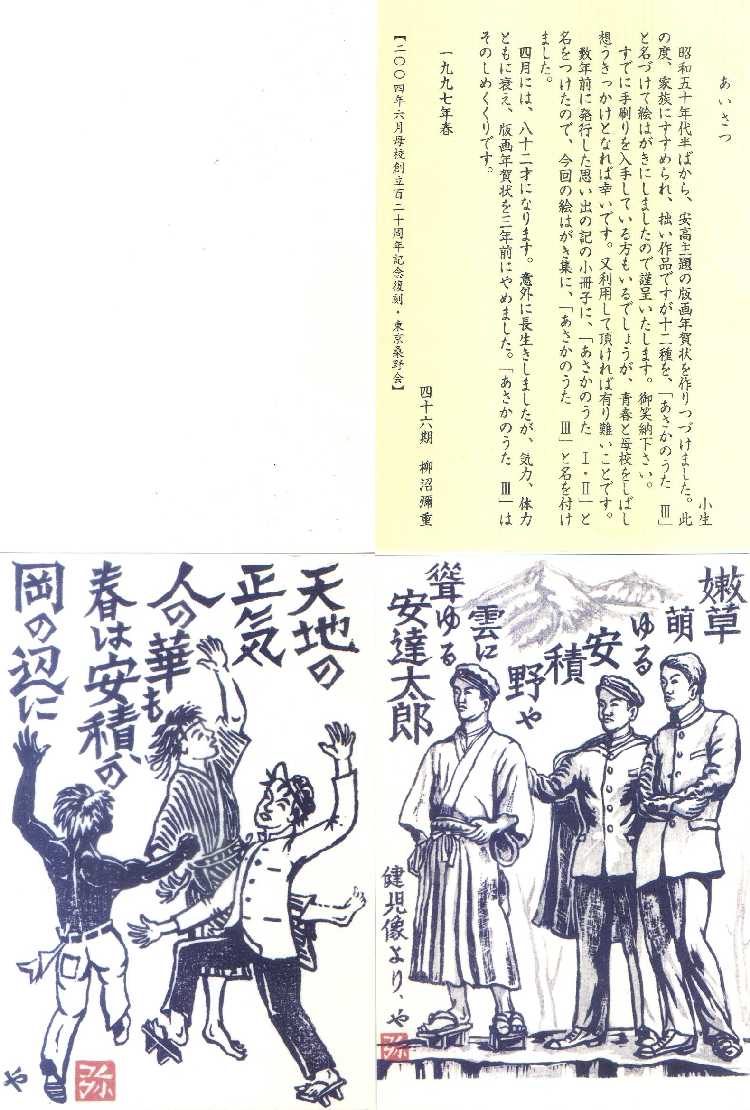 あいさつ
小生
昭和五十年代半ばから、安高主題の版画年賀状を作りつづけました。此
の度、家族にすすめられ、拙い作品ですが十二種を、「あさかのうた Ⅲ」
と名づけて絵はがきにしましたので謹呈いたします。御笑納下さい。
すでに手刷りを入手している方もいるでしょうが、青春と母校をしばし
想うきっかけとなれば幸いです。又利用して頂ければ有り難いことです。
数年前に発行した思い出の記の小冊子に、「あさかのうた Ⅰ・Ⅱ」と
名をつけたので、今回の絵はがき集に、「あさかのうた Ⅲ」と名を付け
ました。
四月には、八十二才になります。意外に長生きしましたが、気力、体力
ともに衰え、版画年賀状を三年前にやめました。「あさかのうた Ⅲ」は
そのしめくくりです。
一九九七年春
四十六期 柳沼彌重
【二〇〇四年六月母校創立百二十周年記念復刻・東京桑野会】
嫩草
萌
ゆる
安
積
野や
雲に
聳ゆる
安達太郎
健児像より、や
弥
天地の
正気
人の華も
春は安積の
岡の辺に
や
弥